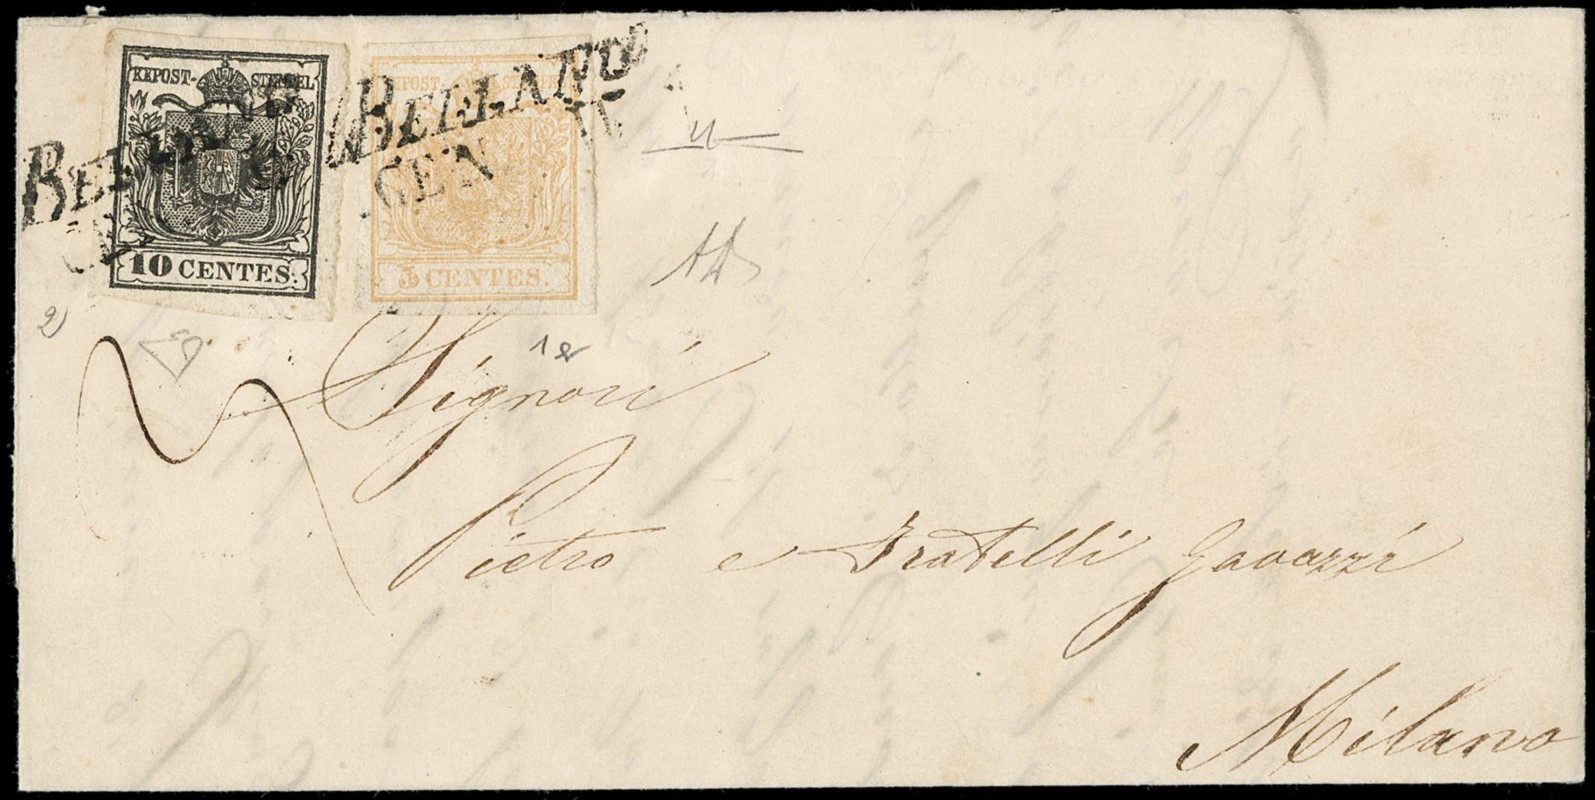 KKPOST-STEMPEL
10 CENTES.
KKPOST-STEMPEL
5 CENTES.
BELLANO
BELLANO
GEN
Signori
Pietro e Fratelli Gavazzi
Milano